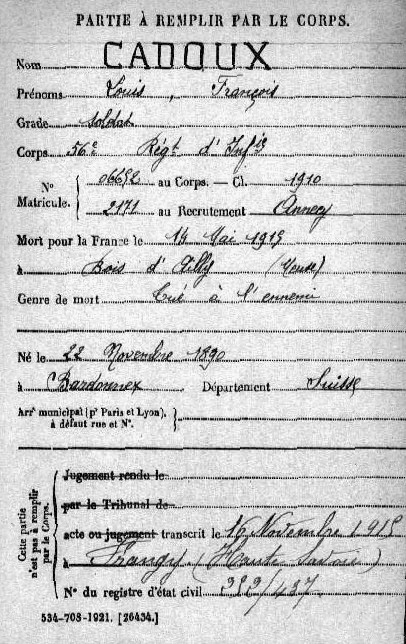 PARTIE À REMPLIR PAR LE CORPS.
Nom CADOUX
Prénoms Louis, François
Grade soldat
Corps 56e Régt d'Infie
N° Matricule. { 06652 au Corps. — Cl. 1910
2171 au Recrutement Annecy
Mort pour la France le 14 Mai 1915
à Bois d'Ailly (Meuse)
Genre de mort Tué à l'ennemi
Né le 22 Novembre 1890
à Bardonnex Département Suisse
Arr' municipal (p' Paris et Lyon),
à défaut rue et N°.
Cette partie n'est pas à remplir par le Corps.
Jugement rendu le
par le Tribunal de
acte ou jugement transcrit le 16 Novembre 1915
à Frangy (Haute Savoie)
N° du registre d'état civil 292/437
534-708-1921. [26434.]